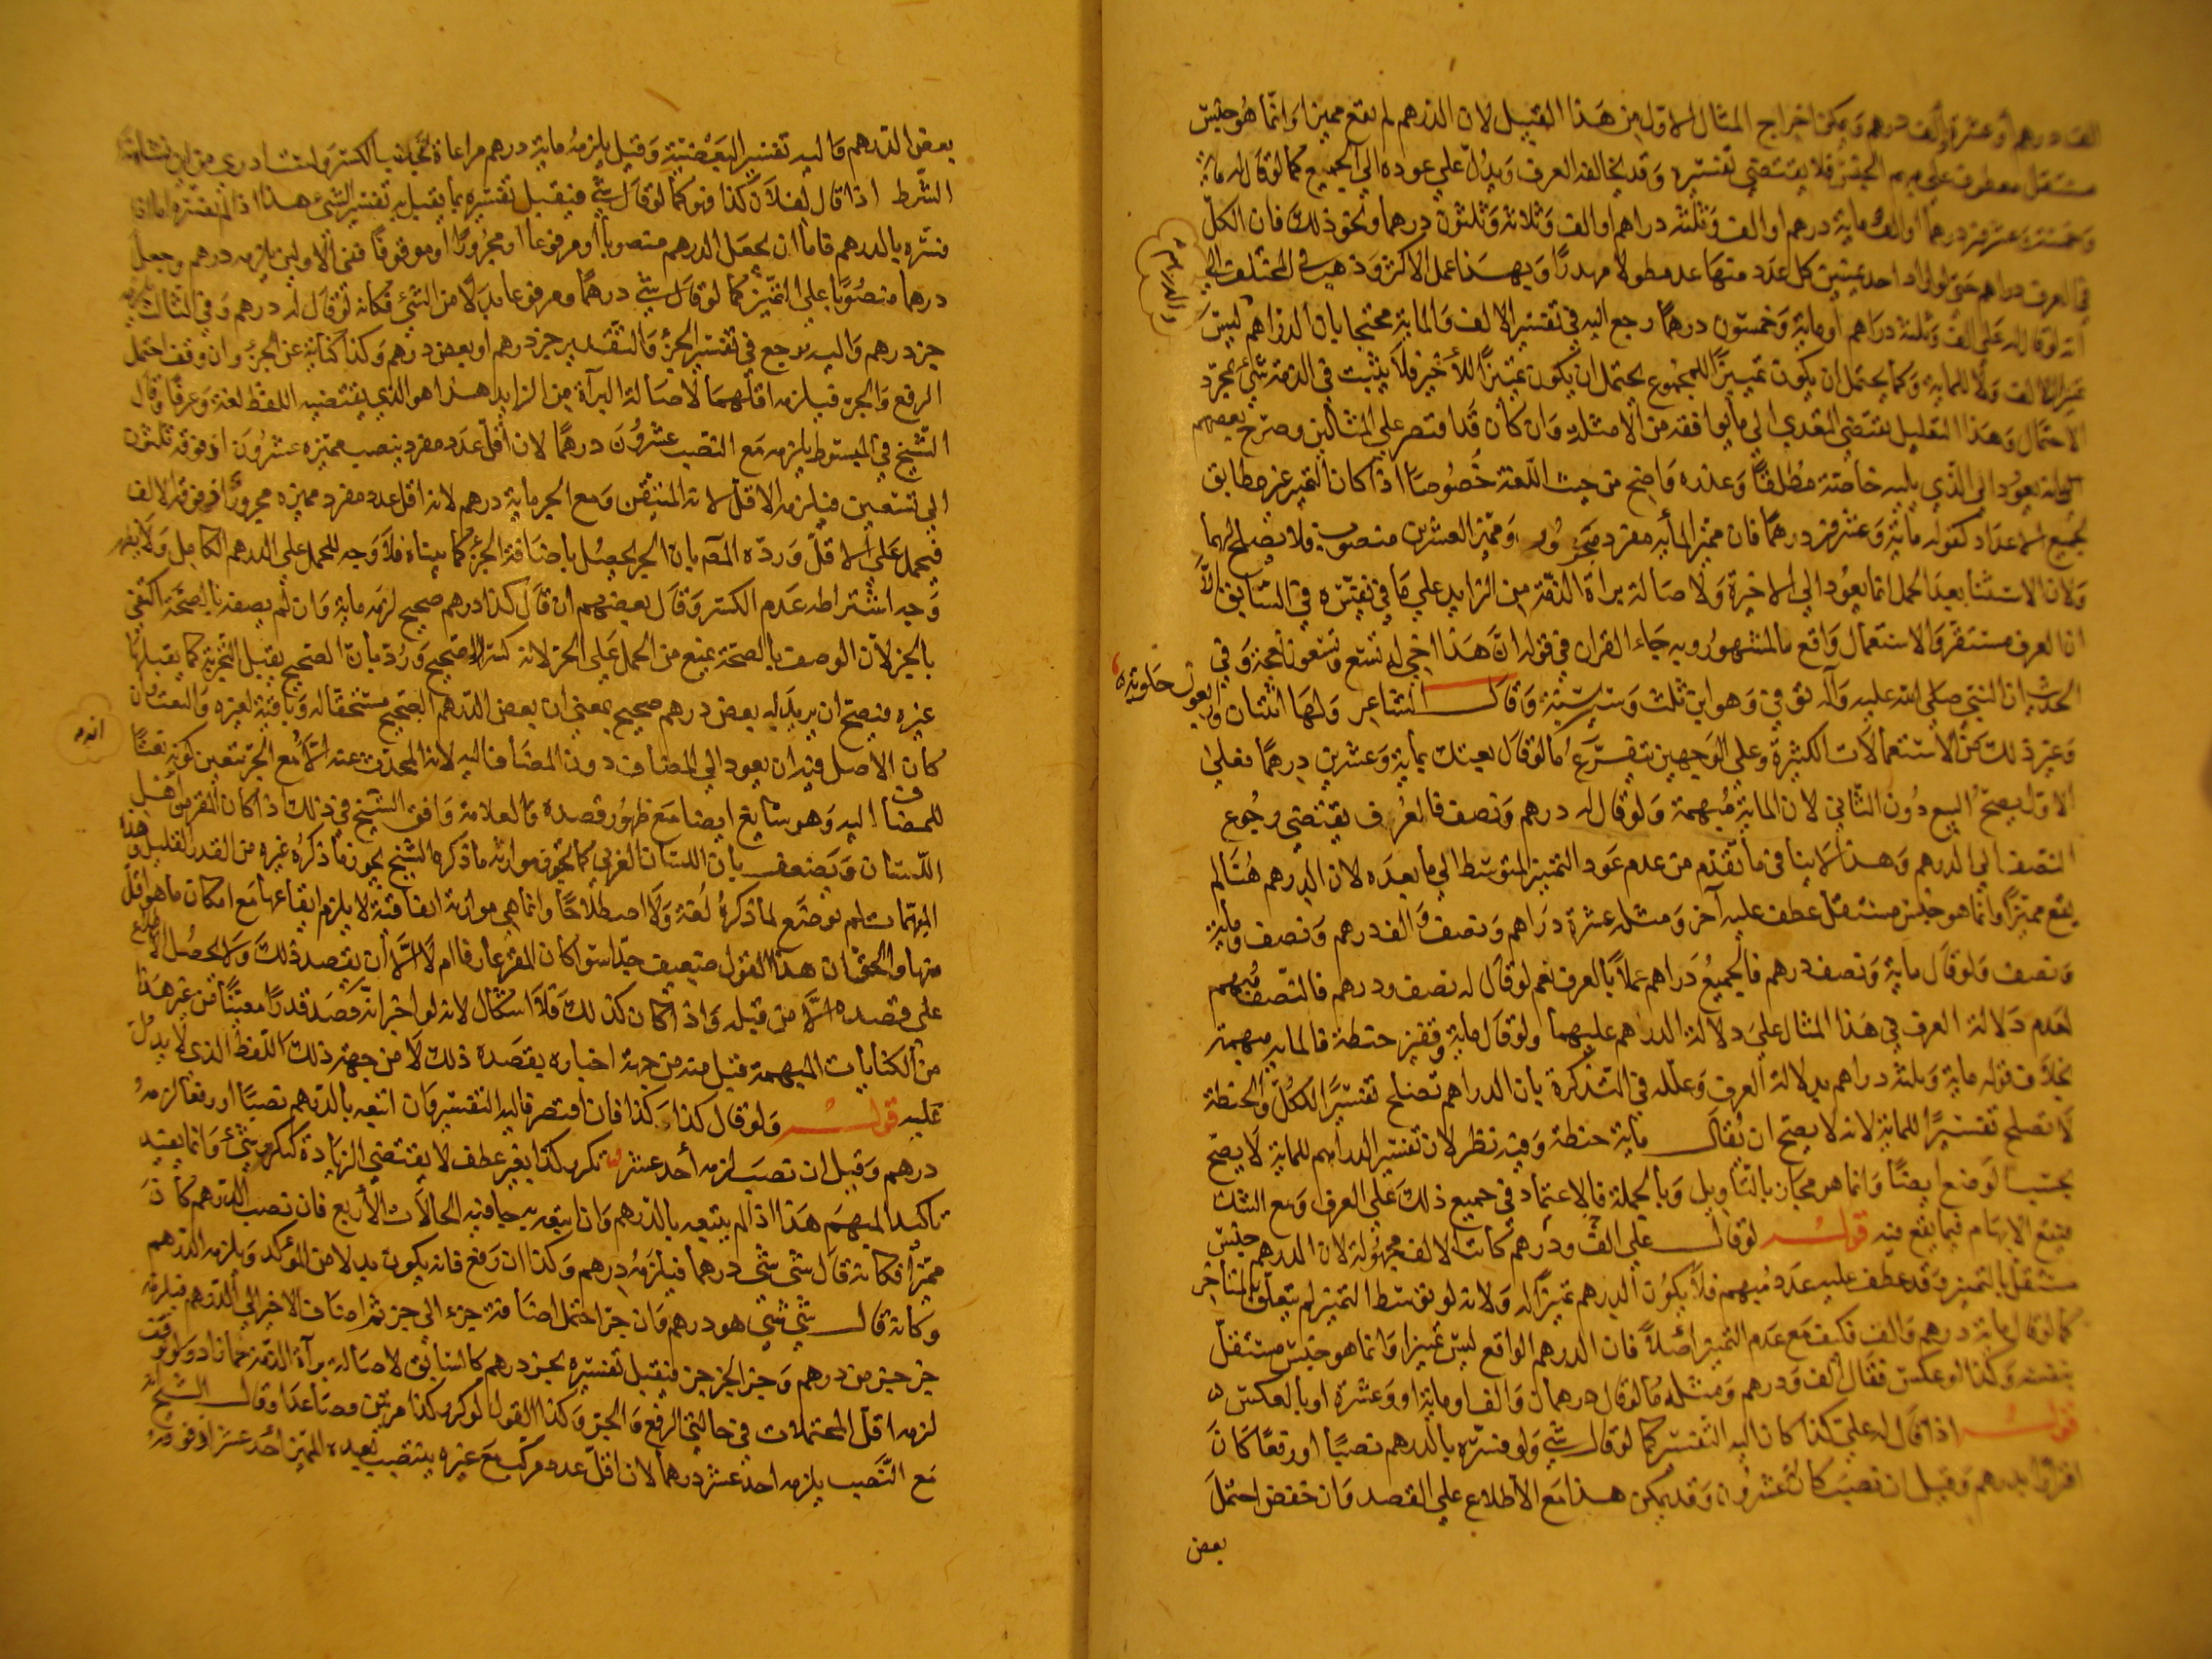 الف درهم أو عشرة وألف درهم ويمكن اخراج المثال الاول من هذا القبيل لان الدرهم لم يقع مميزا وانما هو جنس
مستقل معطوف على مبهم الجنس فلا يقتضى تفسيره وقد يخالفه العرف ويدل على عوده الى الجميع كما لو قال له مائة
وخمسة وعشرون درهما أو الف ومایة درهم او الف وثلثة دراهم او الف وثلاثة وثلثون درهما ونحو ذلك فان الكل
في العرف دراهم حتى لو اراد احد تمييز كل عدد منها عد مطولا مهذرا وبهذا عمل الاكثر وذهب في المختلف الى
والدراهم
انه لو قال له على الف وثلثة دراهم او ماية وخمسون درهما رجع اليه في تفسير الالف والماية محتجا بان الدراهم ليس
تميزا للالف ولا للماية وكما يحتمل ان يكون تمييزا للمجموع يحتمل ان يكون تميزا للأخير فلا يثبت في الذمة شئ بمجرد
الاحتمال وهذا التعليل يقتضى التعدي الى ما يوافقه من الامثلة وان كان قد اقتصر على المثالين وصرح بعضهم
بانه يعود الى الذي يليه خاصة مطلقا وعذره واضح من حيث اللغة خصوصا اذا كان التميز غير مطابق
لجميع الاعداد كقوله ماية وعشرون درهما فان مميز المأیه مفرد مجرور ومميز العشرين منصوب فلا يصلح لهما
ولان الاستثنا بعد الجمل انما يعود الى الاخيرة ولاصالة براة الذمة من الزايد على ما في تفسيره في السابق الا
ان العرف مستقر والاستعمال واقع بالمشهور وبه جاء القران في قوله ان هذا اخي له تسع وتسعون نعجة وفي
الحديث ان النبي صلى الله عليه وآله توفي وهو ابن ثلث وستين سنة وقال الشاعر ولها اثنتان واربعون حلوبة
وغير ذلك من الاستعمالات الكثيرة وعلى الوجهين يتفرع ما لو قال بعتك بماية وعشرين درهما فعلى
الاول يصح البيع دون الثاني لان الماية مبهمة ولو قال له درهم ونصف فالعرف يقتضى رجوع
النصف الى الدرهم وهذا لا ينافى ما تقدم من عدم عود التميز المتوسط الى ما بعده لان الدرهم هنا لم
يقع مميزا وانما هو جنس مستقل عطف عليه آخر ومثله عشرة دراهم ونصف والف درهم ونصف ومأية
ونصف ولو قال ماية ونصف درهم فالجميع دراهم عملا بالعرف نعم لو قال له نصف ودرهم فالنصف مبهم
لعدم دلالة العرف في هذا المثال على دلالة الدراهم عليهما ولو قال ماية وقفيز حنطة فالمايه مبهمة
بخلاف قوله ماية وثلثة دراهم بدلالة العرف وعلله في التذكرة بان الدراهم تصلح تفسيرا للكل والحنطة
لا تصلح تفسيرا للماية لانه لا يصح ان يقال ماية حنطة وفيه نظر لان تفسير الدراهم للماية لا يصح
بحسب الوضع ايضا وانما هو مجاز بالتاويل وبالجملة فالاعتماد في جميع ذلك على العرف ومع الشك
فيتبع الابهام فيما يقع فيه قوله لو قال على الف ودرهم كانت الالف مجهولة لان الدرهم جنس
مستقل بالتميز وقد عطف عليه عدد مبهم فلا يكون الدرهم تميزا له ولانه لو توسط التميز لم يتعلق بالمتأخر
كما لو قال ماية درهم والف فكيف مع عدم التميز أصلا فان الدرهم الواقع ليس تميزا وانما هو جنس مستقل
بنفسه وكذا لو عكس فقال الف ودرهم ومثله ما لو قال درهمان والف او ماية او وعشرة او بالعكس
قوله اذا قال له على كذا كان اليه التفسير كما لو قال شئ ولو فسره بالدرهم نصبا او رفعا كان
اقرارا بدرهم وقيل ان نصب كان عشرون وقد يمكن هذا مع الاطلاع على القصد وان خفض احتمل
بعض
بعض الدرهم واليه تفسير البعضية وقيل يلزمه ماية درهم مراعاة لتجنب الكسر ولست ادرى من اين نشا هذا
الشرط اذا قال لفلان كذا فهو كما لو قال شئ فيقبل تفسيره بما يقبل به تفسير الشئ هذا اذا لم يفسره اما اذا
فسره بالدرهم فاما ان يجعل الدرهم منصوبا أو مرفوعا او مجرورا او موقوفا ففى الاولين يلزمه درهم وجعل
درهما منصوبا على التميز كما لو قال شئ درهما ومرفوعا بدلا من الشئ فكانه لو قال له درهم وفي الثالث يلزمه
جزء درهم واليه يرجع في تفسير الجزء والتقدير جزء درهم او بعض درهم وكذا كناية عن الجزء وان وقف احتمل
الرفع والجر فيلزمه اقلهما لاصالة البرآة من الزايد هذا هو الذي يقتضيه اللفظ لغة وعرفا وقال
الشيخ في المبسوط يلزمه مع النصب عشرون درهما لان اقل عدد مفرد ينصب مميزه عشرون اذ فوقه ثلثون
الى تسعين فيلزمه الاقل لانه المتيقن ومع الجر ماية درهم لانه اقل عدد مفرد مميزه مجرور اذ فوقه الالف
فيحمل على الاقل ورده المصم بان الجر يحصل باضافة الجزء كما بيناه فلا وجه للحمل على الدرهم الكامل ولا يفد
وجه اشتراطه عدم الكسر وقال بعضهم ان قال كذا درهم صحيح لزمه ماية وان لم يصفه بالصحة اكتفى
بالجزء لان الوصف بالصحة يمنع من الحمل على الجزء لانه كسر لا صحيح ورد بان الصحيح يقبل التجزية كما يقبلها
غيره فيصح ان يريد له بعض درهم صحيح بمعنى ان بعض الدرهم الصحيح مستحقا له وباقيه لغيره والنعت وان
انه م
كان الاصل فيه ان يعود الى المضاف دون المضاف اليه لانه المحدث عنه الا مع الجر تتعين كونه نعتا
للمضاف اليه وهو شايع ايضا مع ظهور قصده والعلامة وافق الشيخ في ذلك اذا كان المقر من اهل
اللسان ويضعف بان اللسان العربي كما يجوز موازنة ما ذكره الشيخ يجوز ما ذكره غيره من القدر القليل وهذا
المبهمات لم توضع لما ذكره لغة ولا اصطلاحا وانما هي موازنة اتفاقية لا يلزم ايقاعها مع امكان ما هو اقل
منها والحق ان هذا القول ضعيف جدا سوا كان المقر عارفا ام لا الا ان يقصد ذلك ولا يحصل الاطلاع
على قصده الا من قبله واذا كان كذلك فلا اشكال لانه لو اخبر انه قصد قدرا معينا من غير هذا
من الكنايات المبهمة قبل منه من جهة اخباره بقصده ذلك لا من جهة ذلك اللفظ الذي لا يدل
عليه قوله ولو قال كذا كذا فان اقتصر فاليه التفسير وان اتبعه بالدرهم نصبا او رفعا لزمه
درهم وقيل ان نصب لزمه أحد عشر تكرير كذا بغير عطف لا يقتضى الزيادة كتكرير شئ وانما يفيد
تاكيد المبهم هذا اذا لم يتبعه بالدرهم وان اتبعه به جا فيه الحالات الأربع فان نصب الدرهم كان
مميزا فكانه قال شئ شئ درهما فيلزمه درهم وكذا ان رفع فانه يكون بدلا من المؤكد ويلزمه الدرهم
وكانه قال شئ شئ هو درهم وان جر احتمل اضافة جزء الى جزء ثم اضاف الاخير الى الدرهم فيلزمه
جزء جزء من درهم وجزء الجزء جزء فيقبل تفسيره بجزء درهم كالسابق لاصالة برآة الذمة مما زاد ولو وقف
لزمه اقل المحتملات في حالتي الرفع والجر وكذا القول لو كرر كذا مرتين فصاعدا وقال الشيخ انه
مع النصب يلزمه احد عشر درهما لان اقل عدد مركب مع غيره ينتصب بعده المميز أحد عشر اذ فوقه